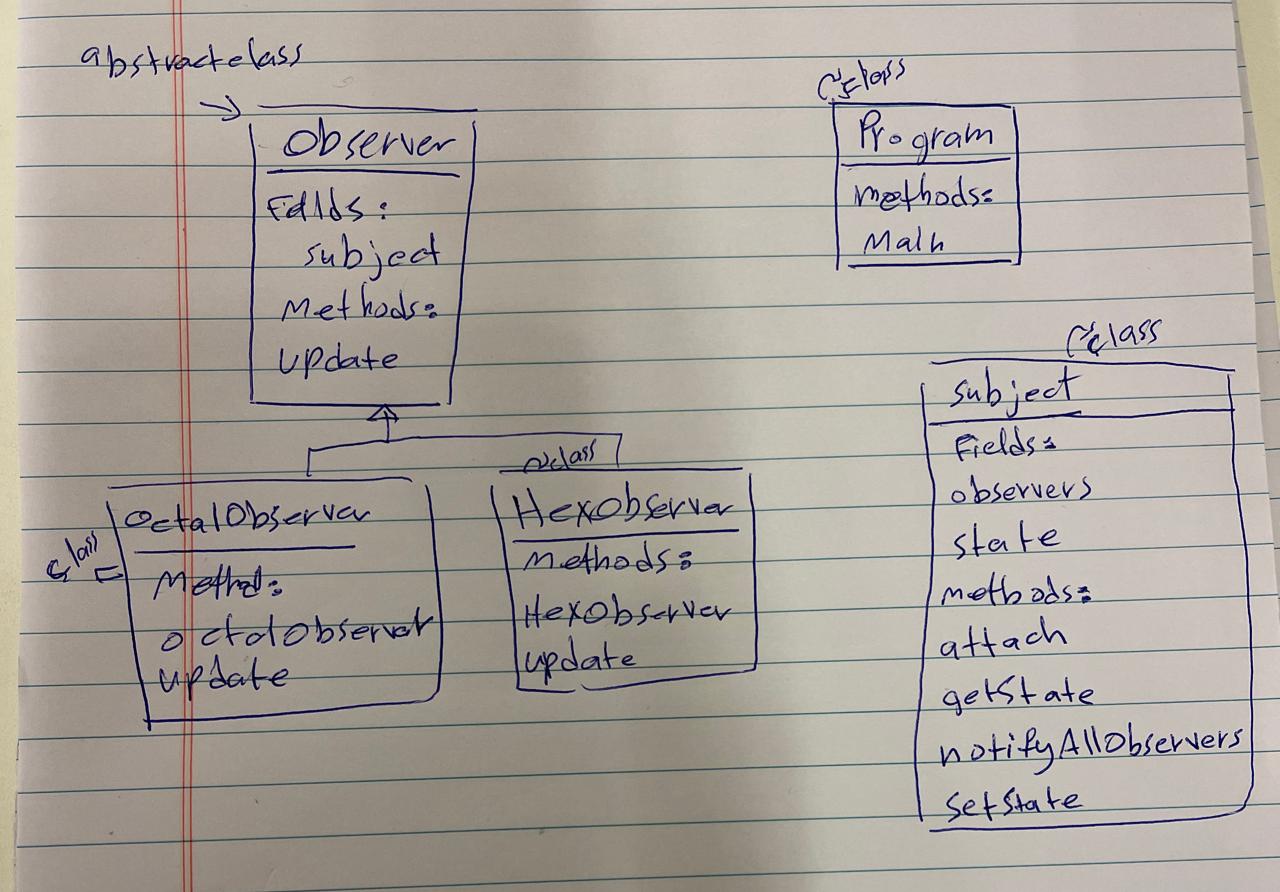 abstractclass
Observer
Fdlds:
subject
Methods:
update
class
OctalObserver
Method:
octalObserver
update
class
HexObserver
Methods:
HexObserver
update
class
Program
methods:
Main
class
subject
Fields:
observers
state
methods:
attach
getState
notifyAllObservers
SetState